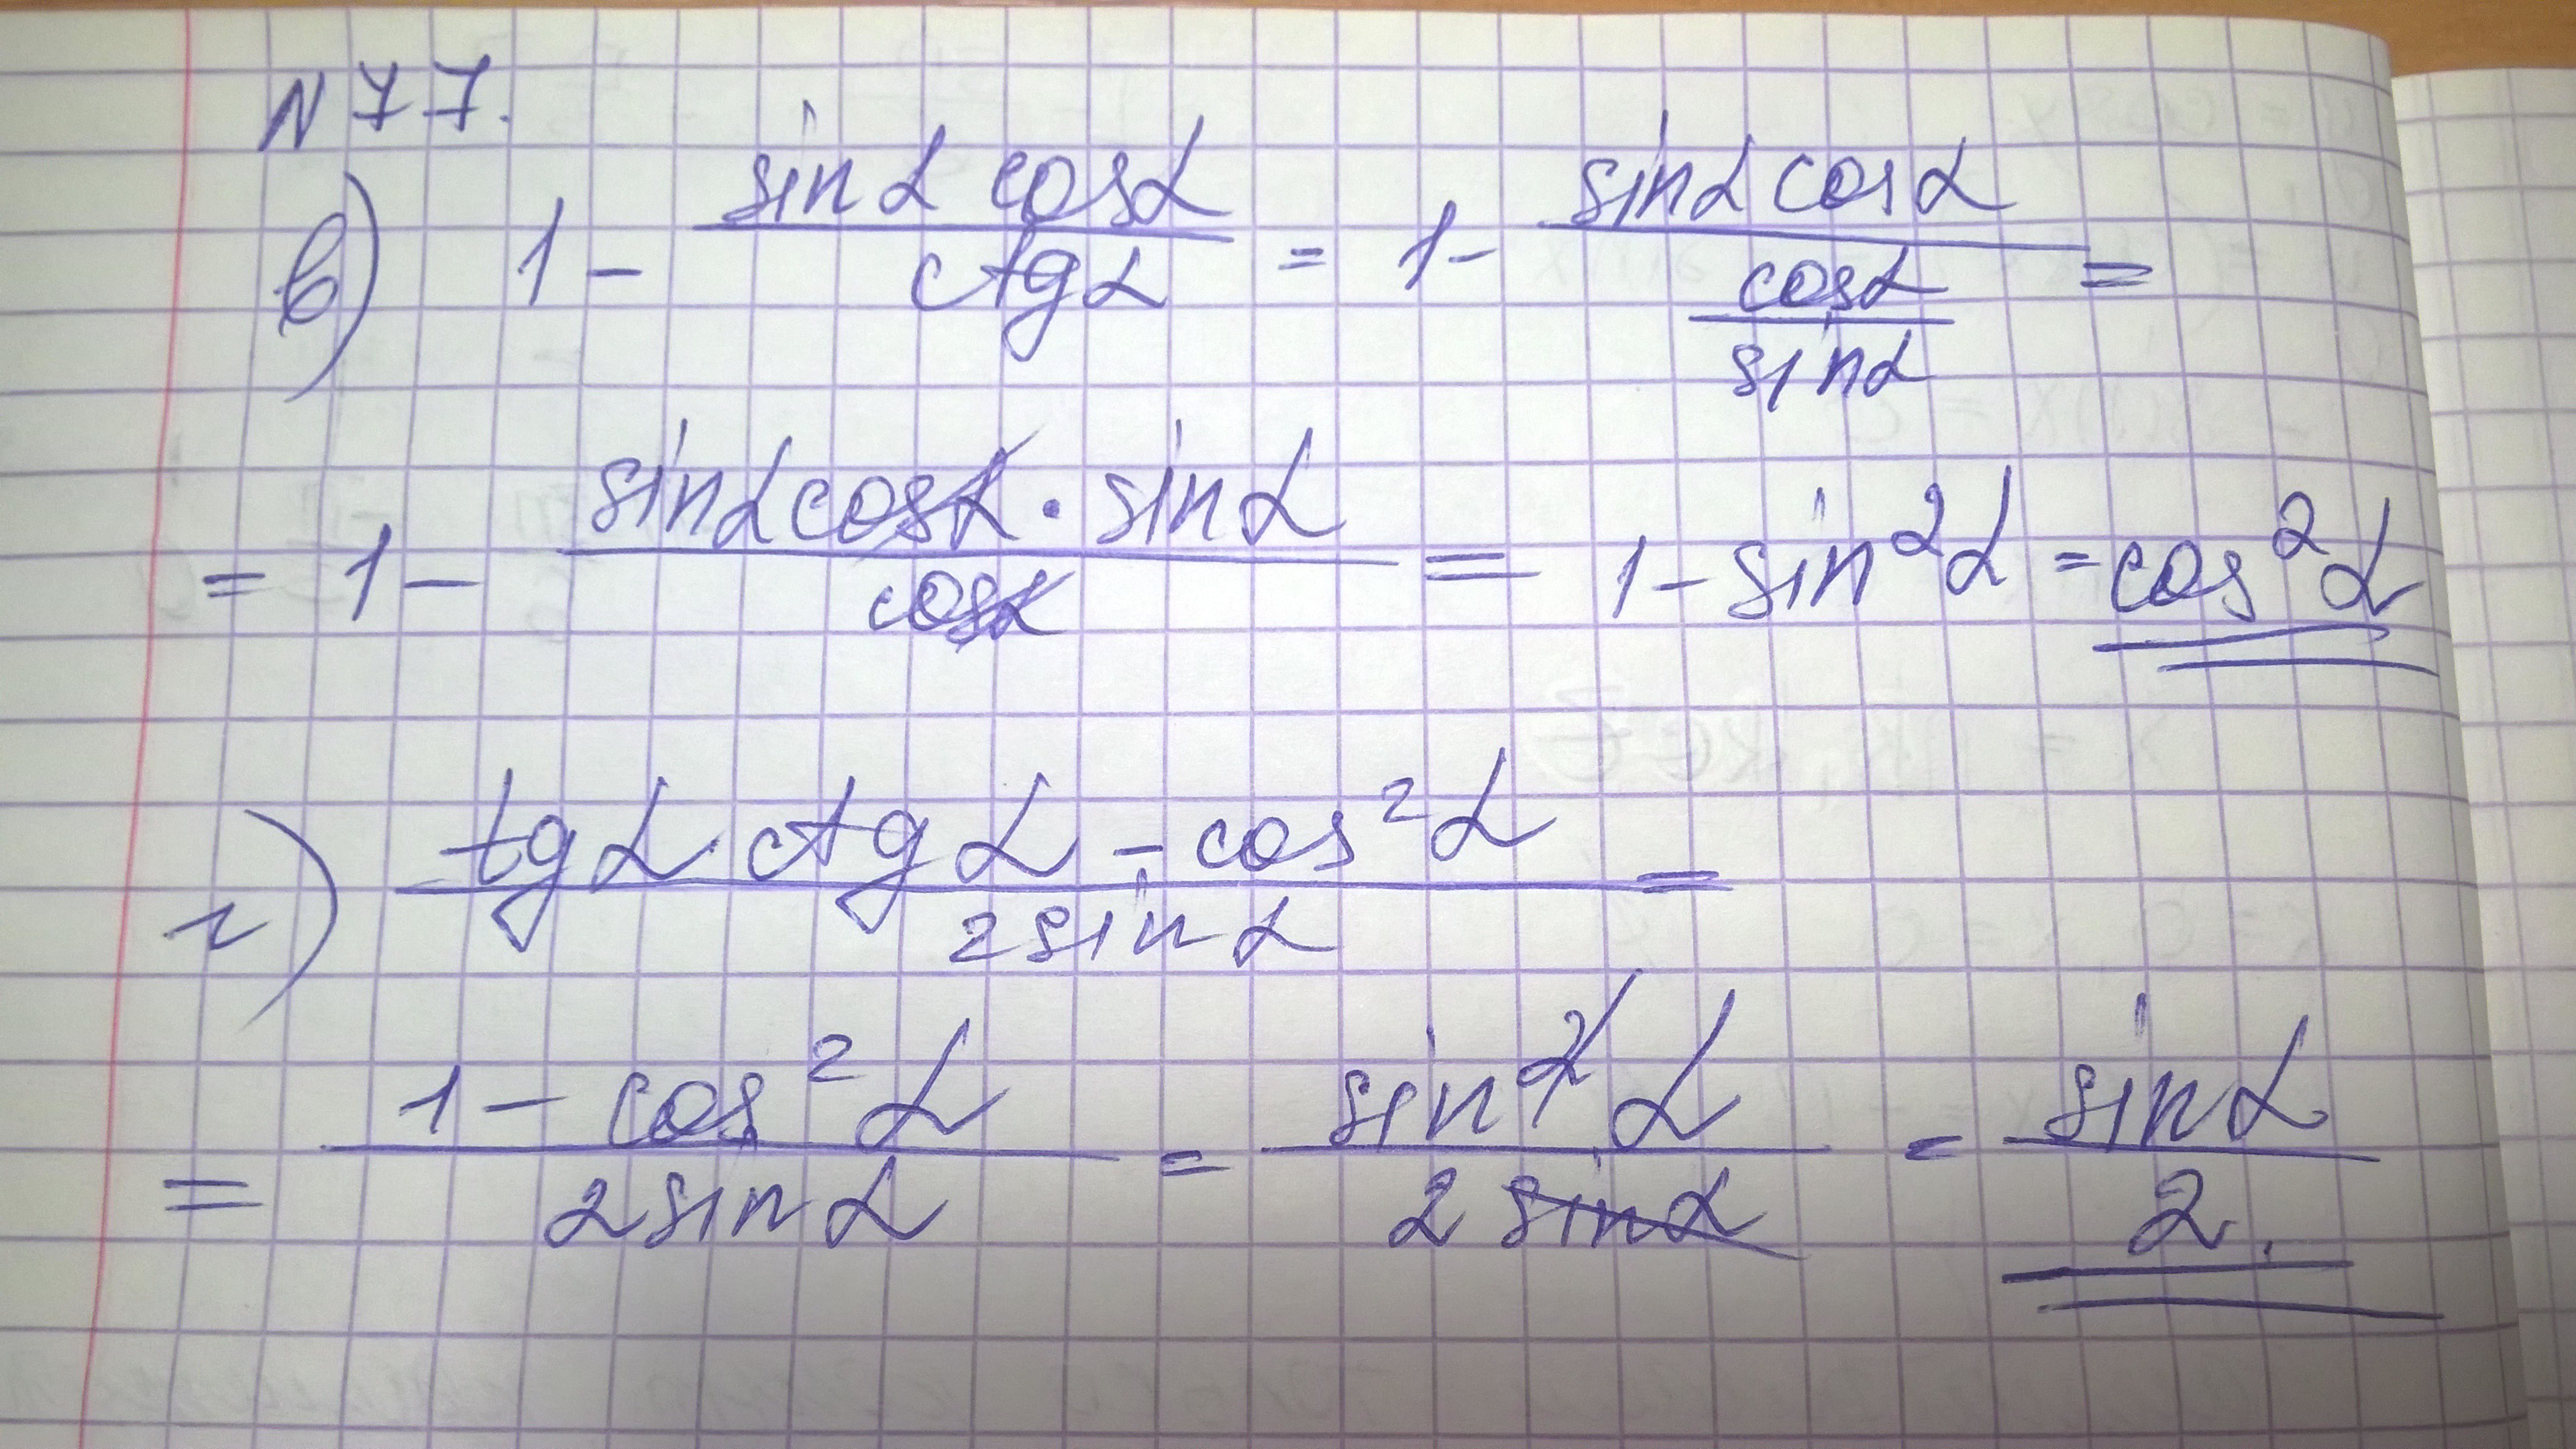 N 77.
в) 1 - \frac{sin α cos α}{ctg α} = 1 - \frac{sin α cos α}{\frac{cos α}{sin α}} =
= 1 - \frac{sin α cos α · sin α}{cos α} = 1 - sin² α = cos² α
г) \frac{tg α · ctg α - cos² α}{2 sin α} =
= \frac{1 - cos² α}{2 sin α} = \frac{sin² α}{2 sin α} = \frac{sin α}{2}.